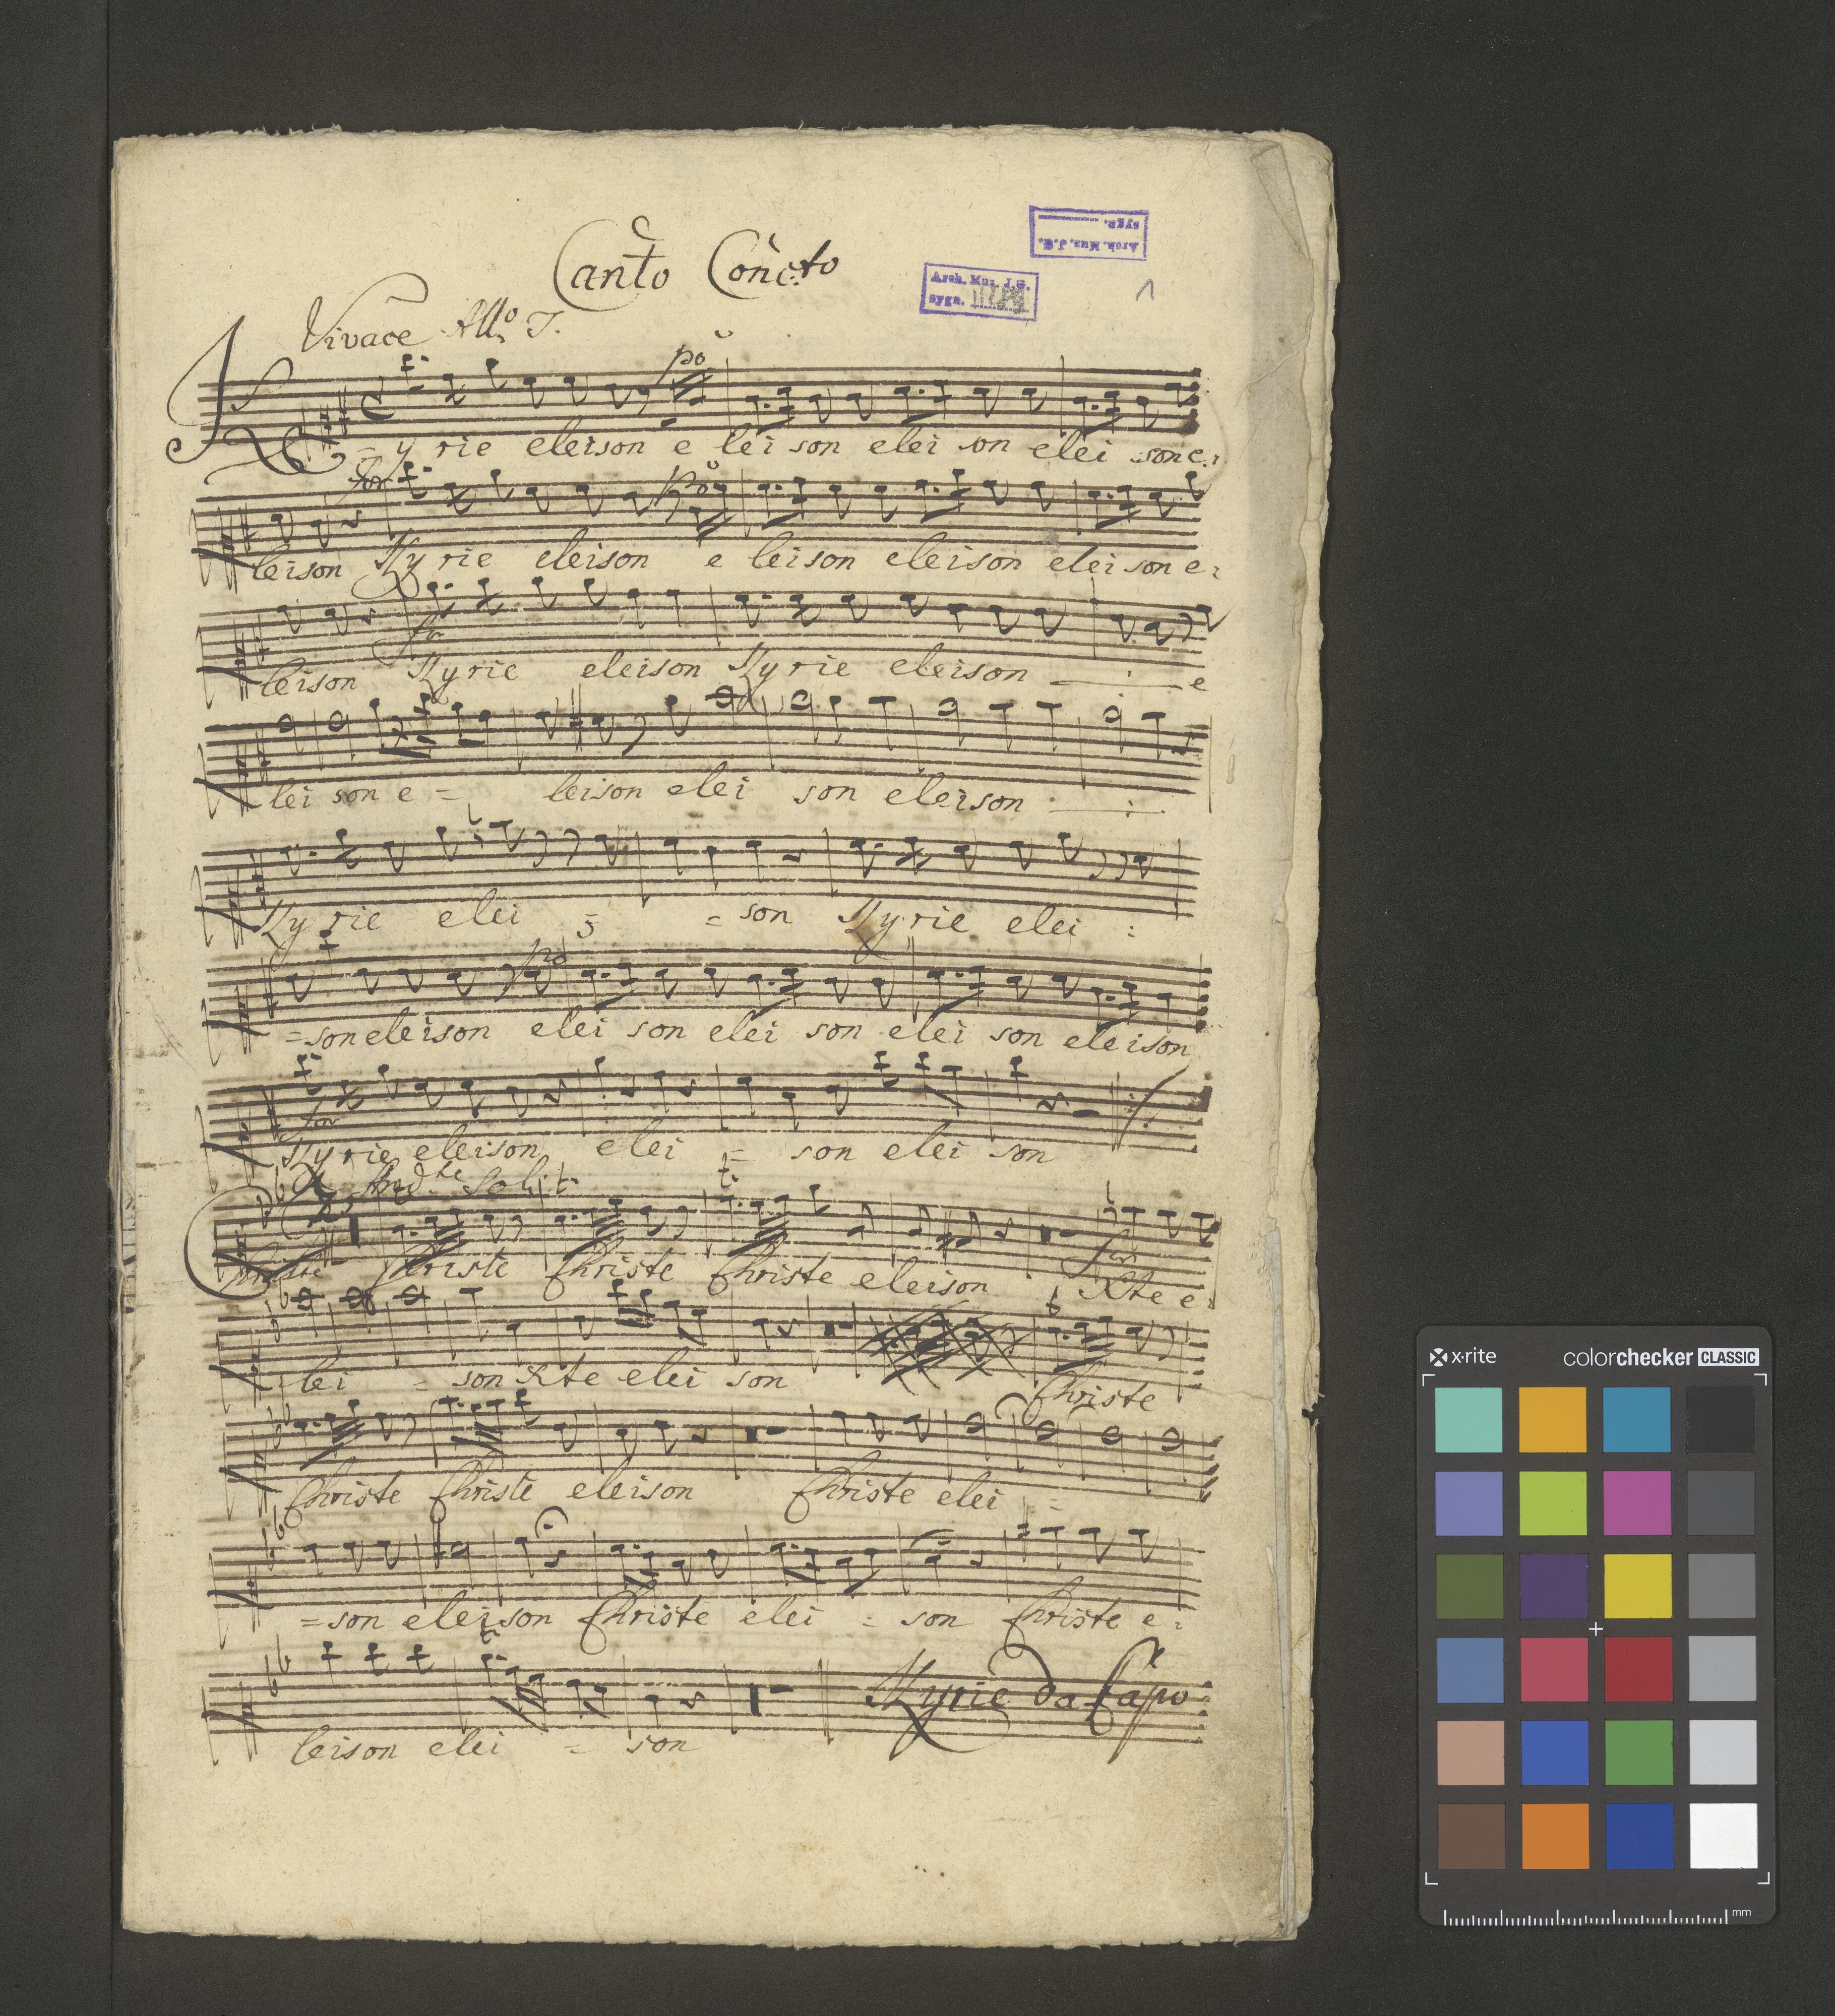 Canto Conc:to
Arch. Muz. J.G.
sygn.
Arch. Muz. J.G.
sygn.
1
Vivace All:o T.
po
Kyrie eleison e lei son elei son elei son e:
for po
leison Kyrie eleison e leison eleison elei son e:
for
leison Kyrie eleison Kyrie eleison e
lei son e = leison elei son eleison
Kyrie elei = = son Kyrie elei :
po
= son eleison elei son elei son elei son eleison
for
Kyrie eleison elei = son elei son
And:te Solit:
Christe Christe Christe Christe eleison for Xte e:
lei = son Xte elei son Christe
Christe Christe eleison Christe elei =
= son eleison Christe elei = son Christe e:
leison elei = son
Kyrie da Capo
x·rite colorchecker CLASSIC
mm